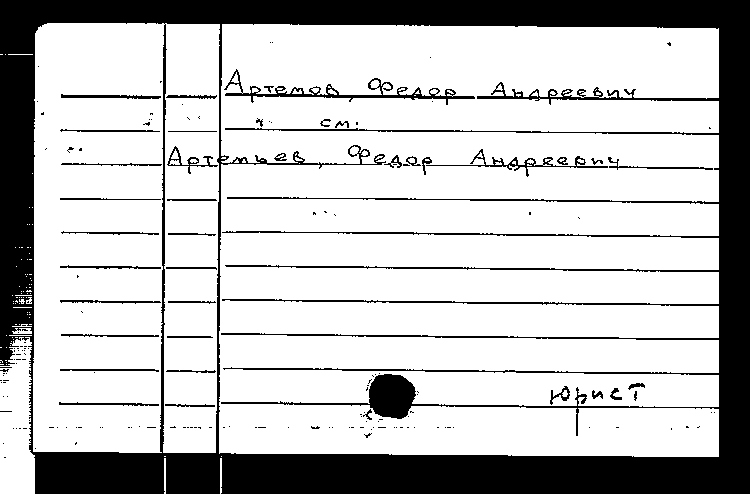 Артемов, Федор Андреевич
см:
Артемьев, Федор Андреевич
юрист